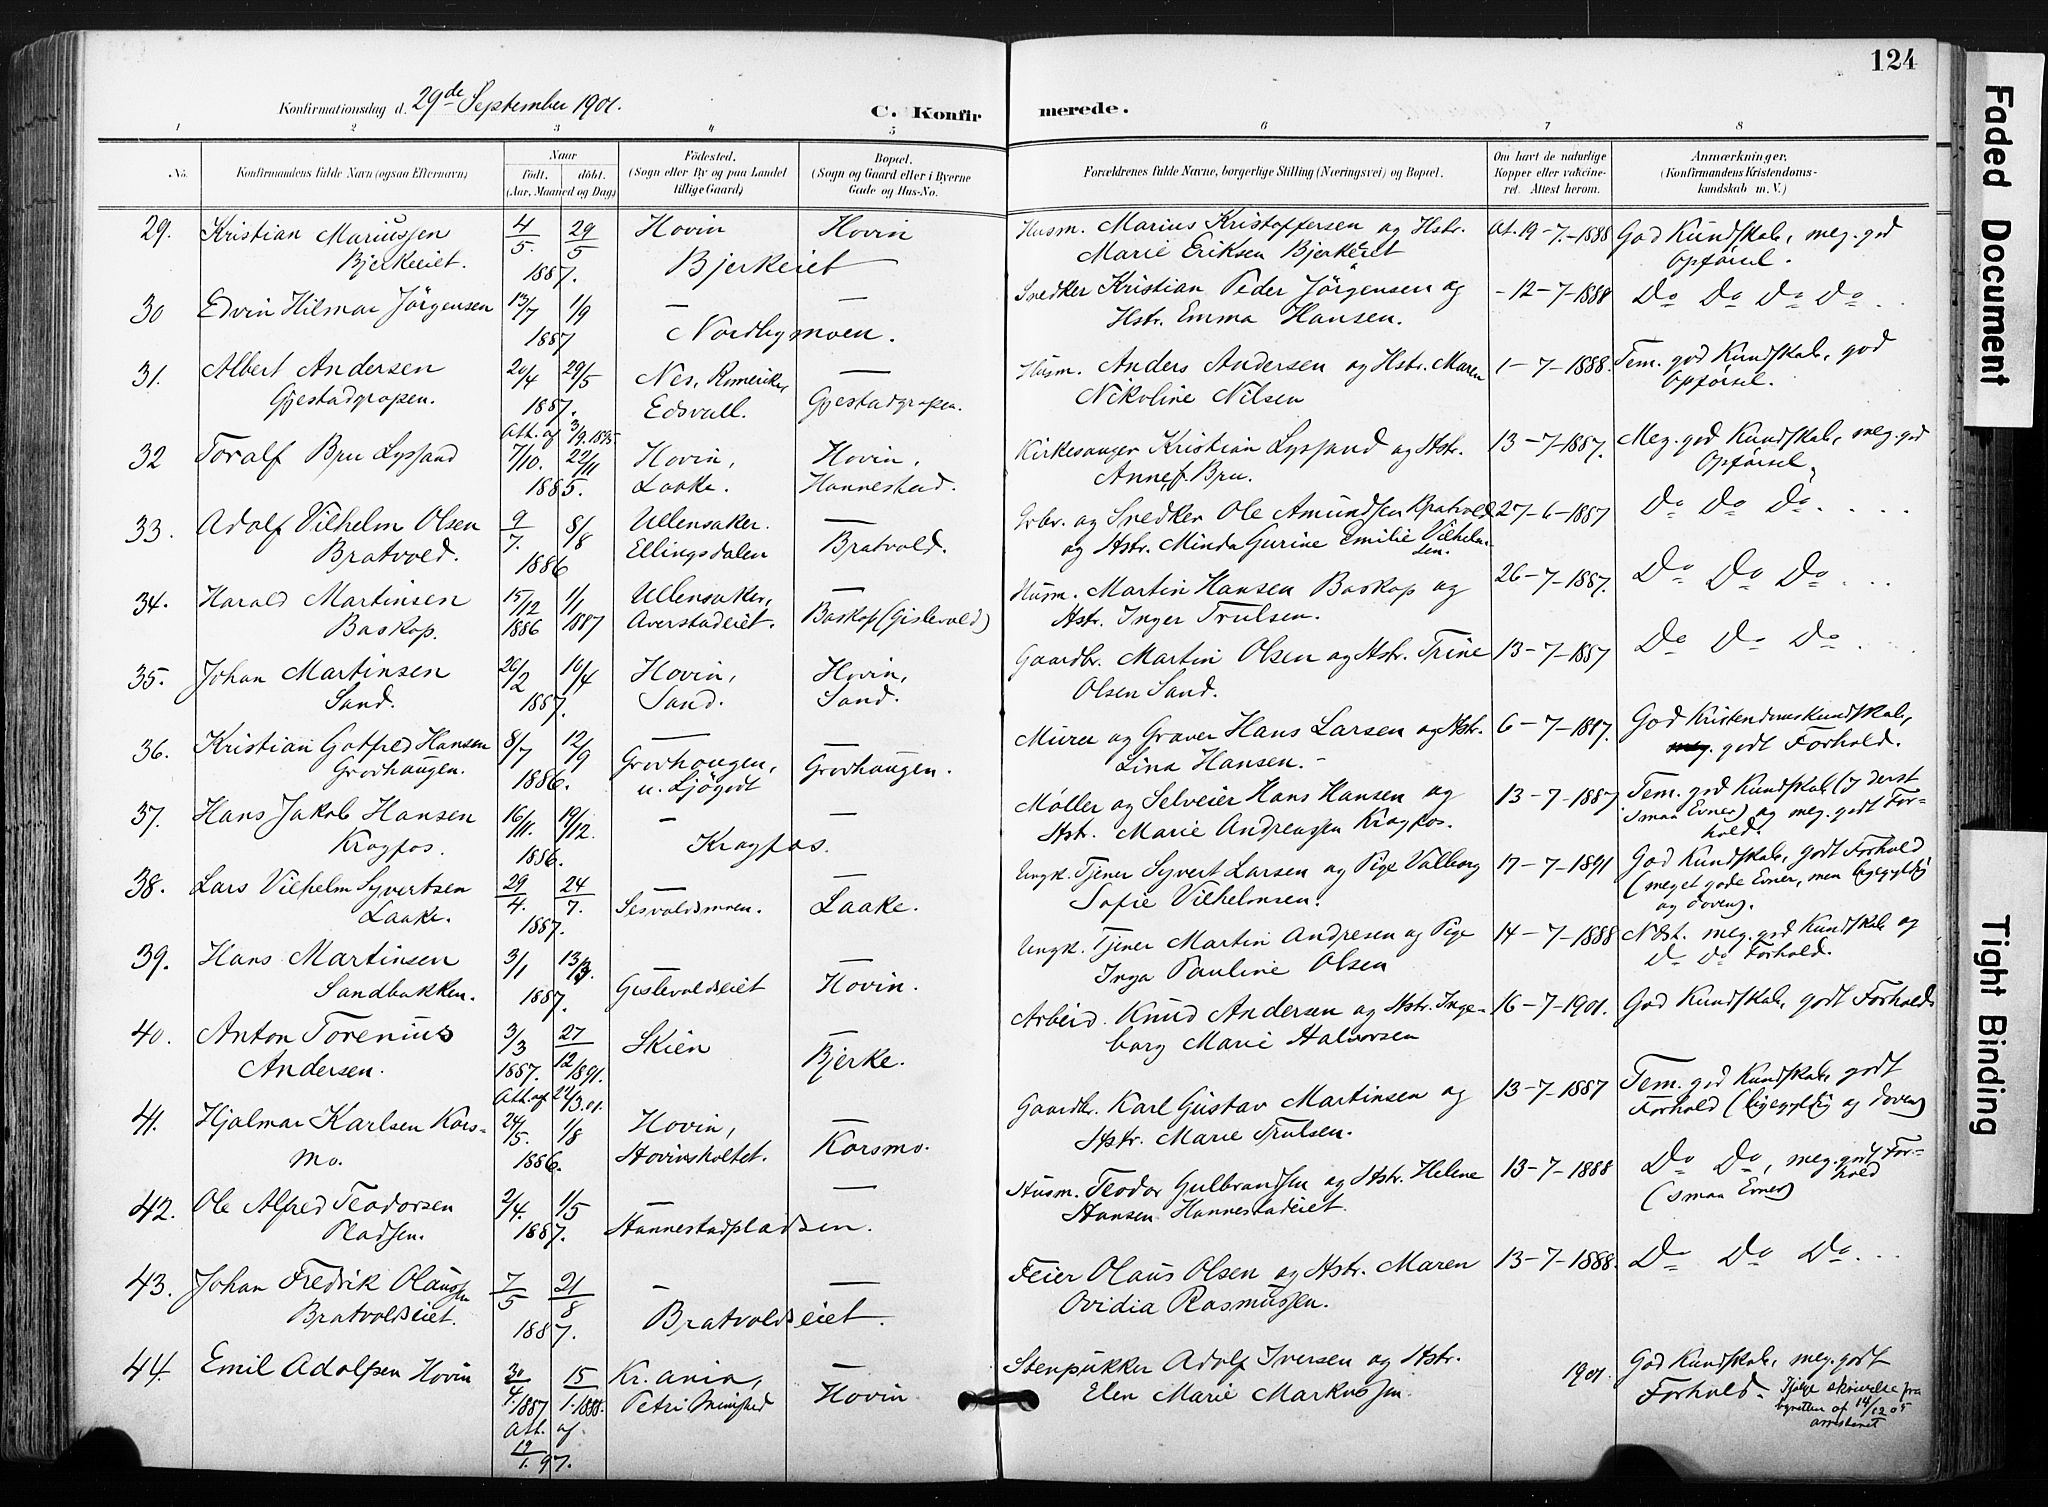 124
Konfirmationsdag d. 29de September 1901.
C. Konfirmerede.
1 2 3 4 5 6 7 8
No.
Konfirmandens fulde Navn (ogsaa Efternavn)
Naar
Født. døbt.
(Aar, Maaned og Dag)
Fødested.
(Sogn eller By og paa Landet
tillige Gaard)
Bopæl.
(Sogn og Gaard eller i Byerne
Gade og Hus-No.
Forældrenes fulde Navne, borgerlige Stilling (Næringsvei) og Bopæl.
Om havt de naturlige
Kopper eller vakcine-
ret. Attest herom.
Anmærkninger.
(Konfirmandens Kristendoms-
kundskab m. V.)
29. Kristian Mariussen 4/5. 29/5 Hovin Hovin Husm. Marius Kristoffersen og Hstr. At. 19-7-1888 God Kundskab, meg. god
Bjerkeiet. 1887. Bjerkeiet Marie Eriksen Bjerkeiet Opførsel.
30 Edvin Hilmar Jörgensen 13/7 1/9 — — Snedker Kristian Peder Jörgensen og -12-7-1888 Do Do Do Do
1887 Nordbymoen. Hstr. Emma Hansen.
31. Albert Andersen 20/4 29/5 Nes, Romerike, — Husm. Anders Andersen og Hstr. Maren 1-7-1888. Tem. god Kundskab, god
Gjestadgropen. 1887. Edsvall. Gjestadgropen. Nikoline Nilsen Opførsel.
Att. af 3/9. 1895
32 Toralf Bru Lyssand 7/10. 22/11 Hovin, Hovin, Kirkesanger Kristian Lyssand og Hstr. 13-7-1887. Meg. god Kundskab, meg. god
1885. Laake. Hannestad. Anne f. Bru. Opførsel.
33. Adolf Vilhelm Olsen 9/7. 8/8 Ullensaker. — Grbr. og Snedker Ole Amundsen Bratvold 27-6-1887 Do Do Do
Bratvold. 1886 Ellingsdalen Bratvold. og Hstr. Minda Gurine Emilie Vilhelm-
sen.
34. Harald Martinsen 15/12 1/1 Ullensaker, — Husm. Martin Hansen Baskop og 26-7-1887. Do Do Do
Baskop. 1886 1887 Averstadeiet. Baskop (Gislevold) Hstr. Inger Trulsen.
35. Johan Martinsen 26/2 10/4 Hovin, Hovin, Gaardbr. Martin Olsen og Hstr. Trine 13-7-1887 Do Do Do
Sand. 1887. Sand. Sand. Olsen Sand.
36. Kristian Gotfred Hansen 8/7 12/9 — — Murer og Graver Hans Larsen og Hstr. 6-7-1887. God Kristendomskundskab,
Grovhaugen. 1886. Grovhaugen, Grovhaugen. Lina Hansen. - meg. godt Forhold.
u. Ljögodt
37. Hans Jakob Hansen 16/11. 19/12. — — Møller og Selveier Hans Hansen og 13-7-1887 Tem. god Kundskab (yderst
Kragfos. 1886. Kragfos. Hstr. Marie Andreassen Kragfos. smaa Evner) og meg. godt For-
hold.
38. Lars Vilhelm Syvertsen 29/4. 24/7. — — Ungk. Tjener Syvert Larsen og Pige Valborg 17-7-1891 God Kundskab, godt Forhold
Laake. 1887. Sesvoldsmoen. Laake. Sofie Vilhelmsen. (meget gode Evner, men ligegyldig
og doven).
39. Hans Martinsen 3/1 13/3. — — Ungk. Tjener Martin Andresen og Pige 14-7-1888 Ndst. meg. god Kundskab og
Sandbakken. 1887. Gislevoldseiet Hovin. Inga Pauline Olsen Do Do Forhold.
40. Anton Torenius 3/3 27/12 Skien Bjerke. Arbeid. Knud Andersen og Hstr. Inge- 16-7-1901. God Kundskab, godt Forhold
Andersen. 1887. 1891. borg Marie Halvorsen
Att. af 22/3.01.
41. Hjalmar Karlsen Kors- 24/5. 1/8 Hovin, — Gaardbr. Karl Gustav Martinsen og 13-7-1887 Tem. god Kundskab, godt
mo. 1886. Hovinsholtet. Korsmo. Hstr. Marie Trulsen. Forhold (ligegyldig og doven)
42. Ole Alfred Teodorsen 2/4. 1/5 — — Husm. Teodor Gulbrandsen og Hstr. Helene 13-7-1888 Do Do, meg. godt For-
Pladsen. 1887. Hannestadpladsen. Hansen Hannestadeiet. (smaa Evner) hold
43. Johan Fredrik Olaussen 7/5 21/8 — — Feier Olaus Olsen og Hstr. Maren 13-7-1888. Do Do Do
Bratvoldseiet. 1887. Bratvoldseiet. Ovidia Rasmussen.
44. Emil Adolfsen Hovin 30/4. 15/1. Kr.ania, — Stenpukker Adolf Iversen og Hstr. 1901. God Kundskab, meg. godt
1887 1888. Petri Menighed Hovin. Elen Marie Markussen. Forhold. - Ifølge skrivelse fra
Att. af byretten af 14/12 05
19/1. 97.
Faded Document
Tight Binding